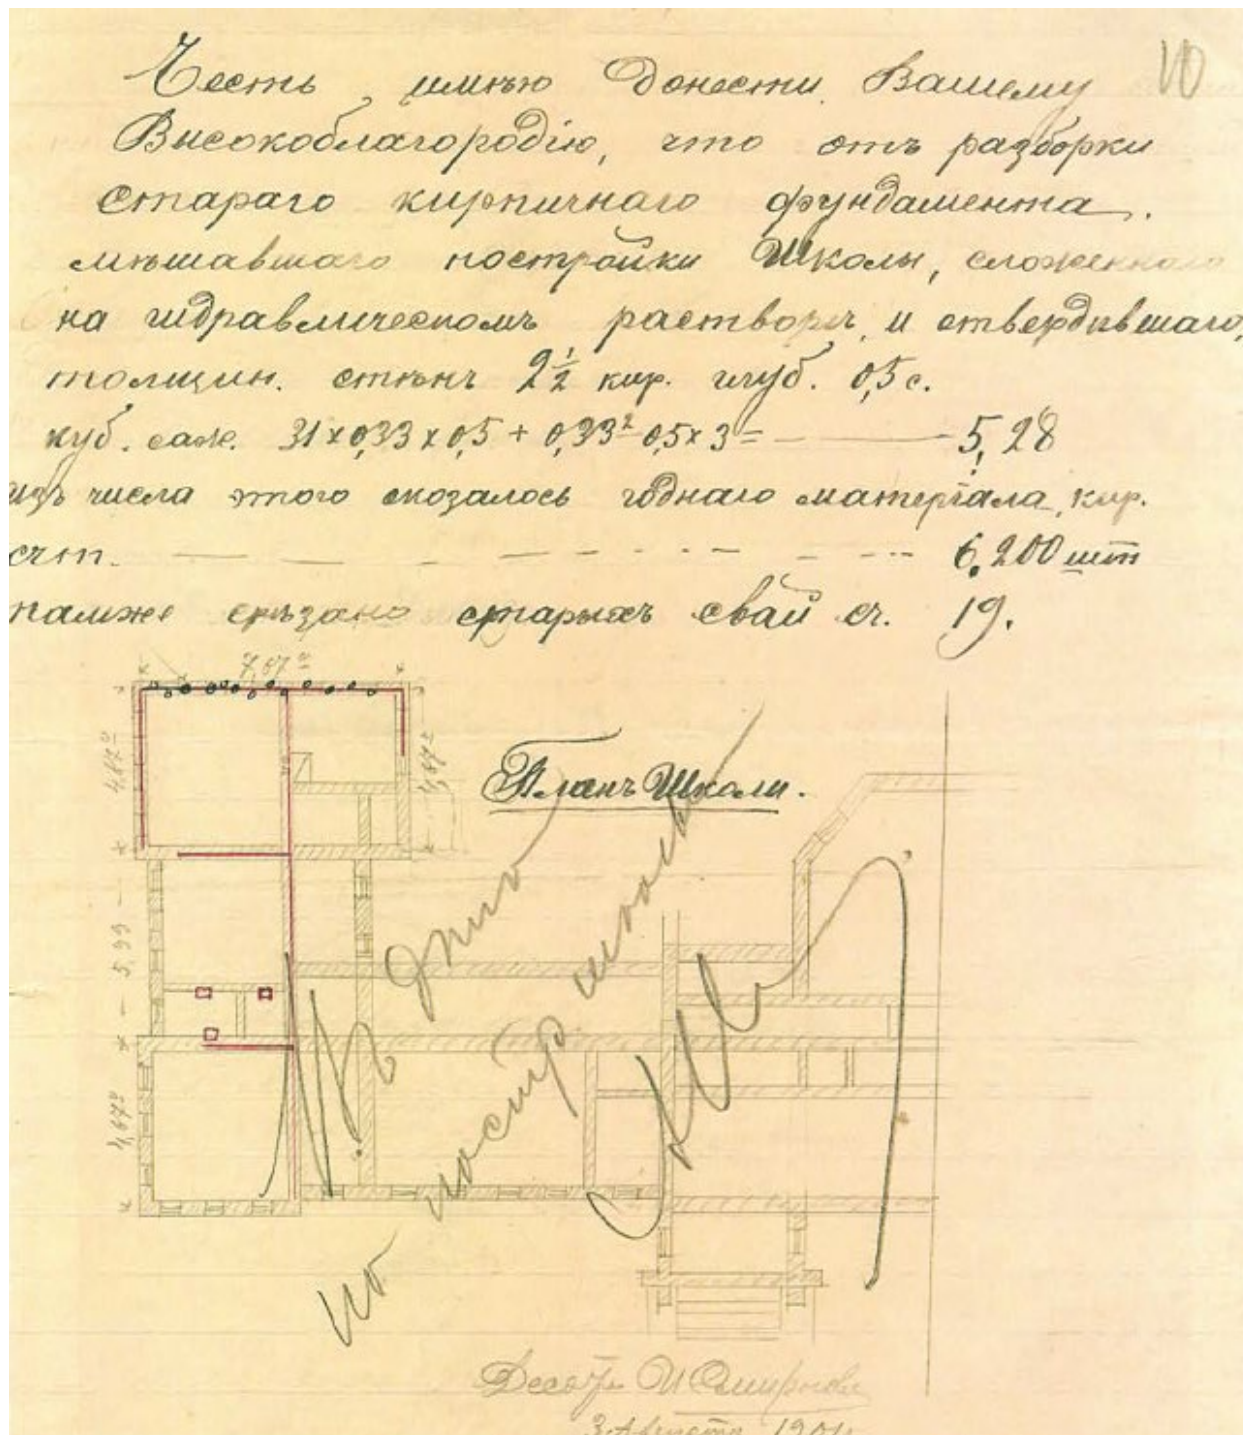 10
Честь имѣю донести Вашему
Высокоблагородію, что отъ разборки
стараго кирпичнаго фундамента.
мѣшавшаго постройки Школы, сложеннаго
на гидравлическомъ растворѣ, и отвердѣвшаго,
толщин. стѣнъ 2½ кир. глуб. 0,5 с.
куб. саж. 31 x 0,33 x 0,5 + 0,33² 0,5 x 3 = — 5,28
изъ числа этого оказалось годнаго матеріала, кир.
счт. — — - - - - - - - 6,200 шт
тамже срѣзано старыхъ свай сч. 19.
7,07
4,87
3,87
Планъ Школы.
5,99
4,67
Къ дѣлу
по постр школы
Десят. И Смирновъ
3 Августа 1904